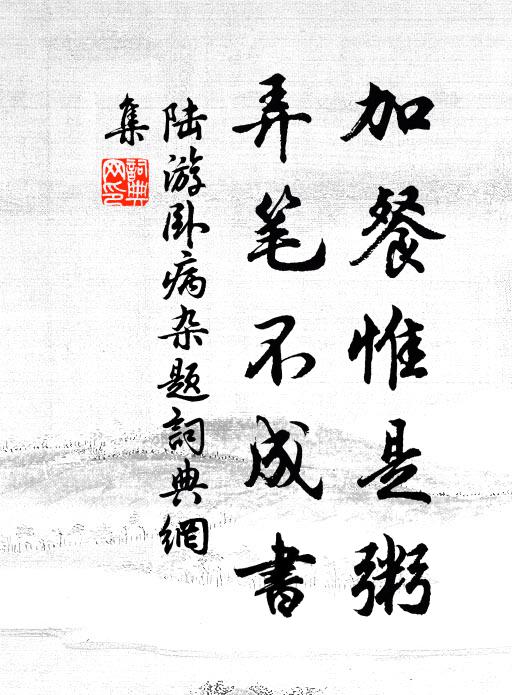 加餐惟是粥
弄笔不成書
陆游卧病杂题詞典網
集
詞典
网印